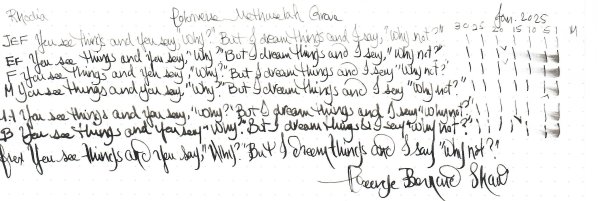 Rhodia Methuselah Grove Jan. 2025
30 25 20 15 10 5 1 M
JEF You see things and you say, "Why?" But I dream things and I say, "Why not?"
EF You see things and you say, "Why?" But I dream things and I say, "Why not?"
F You see things and yeh say, "Why?" But I dream things and I say, "Why not?"
M You see things and you say, "Why?" But I dream things and I say, "Why not?"
You see things and you say, "Why?" But I dream things and I say, "Why not?"
B You see things and you say "Why?" But I dream things I say "Why not?"
flex You see things and you say, "Why?" But I dream things and I say "Why not?"
George Bernard Shaw